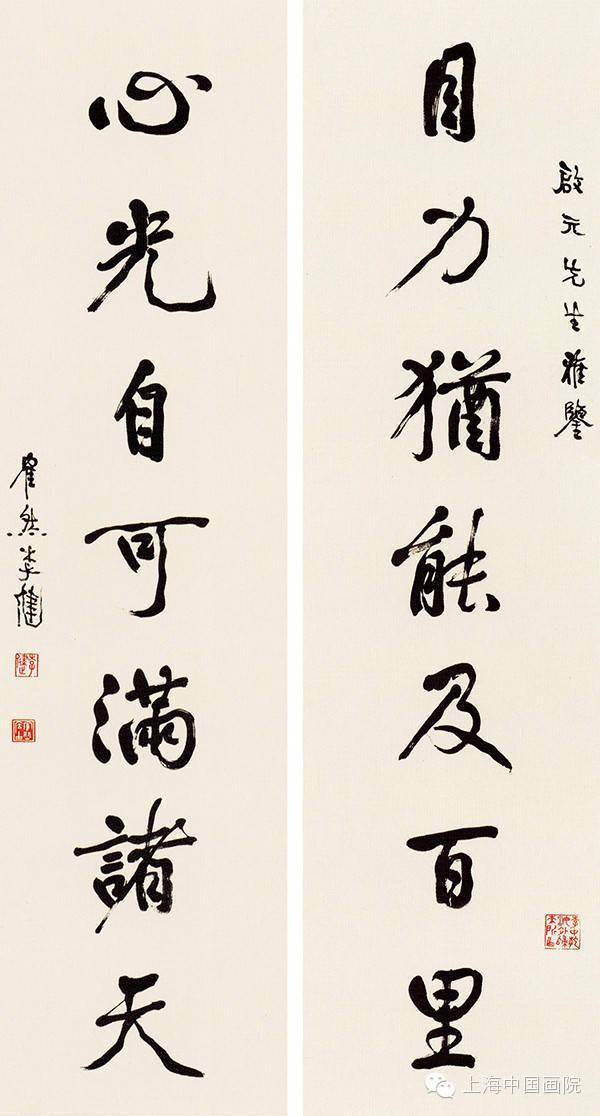 啟元先生雅鑒
目力猶能及百里
心光自可滿諸天
瞿然李健
上海中国画院